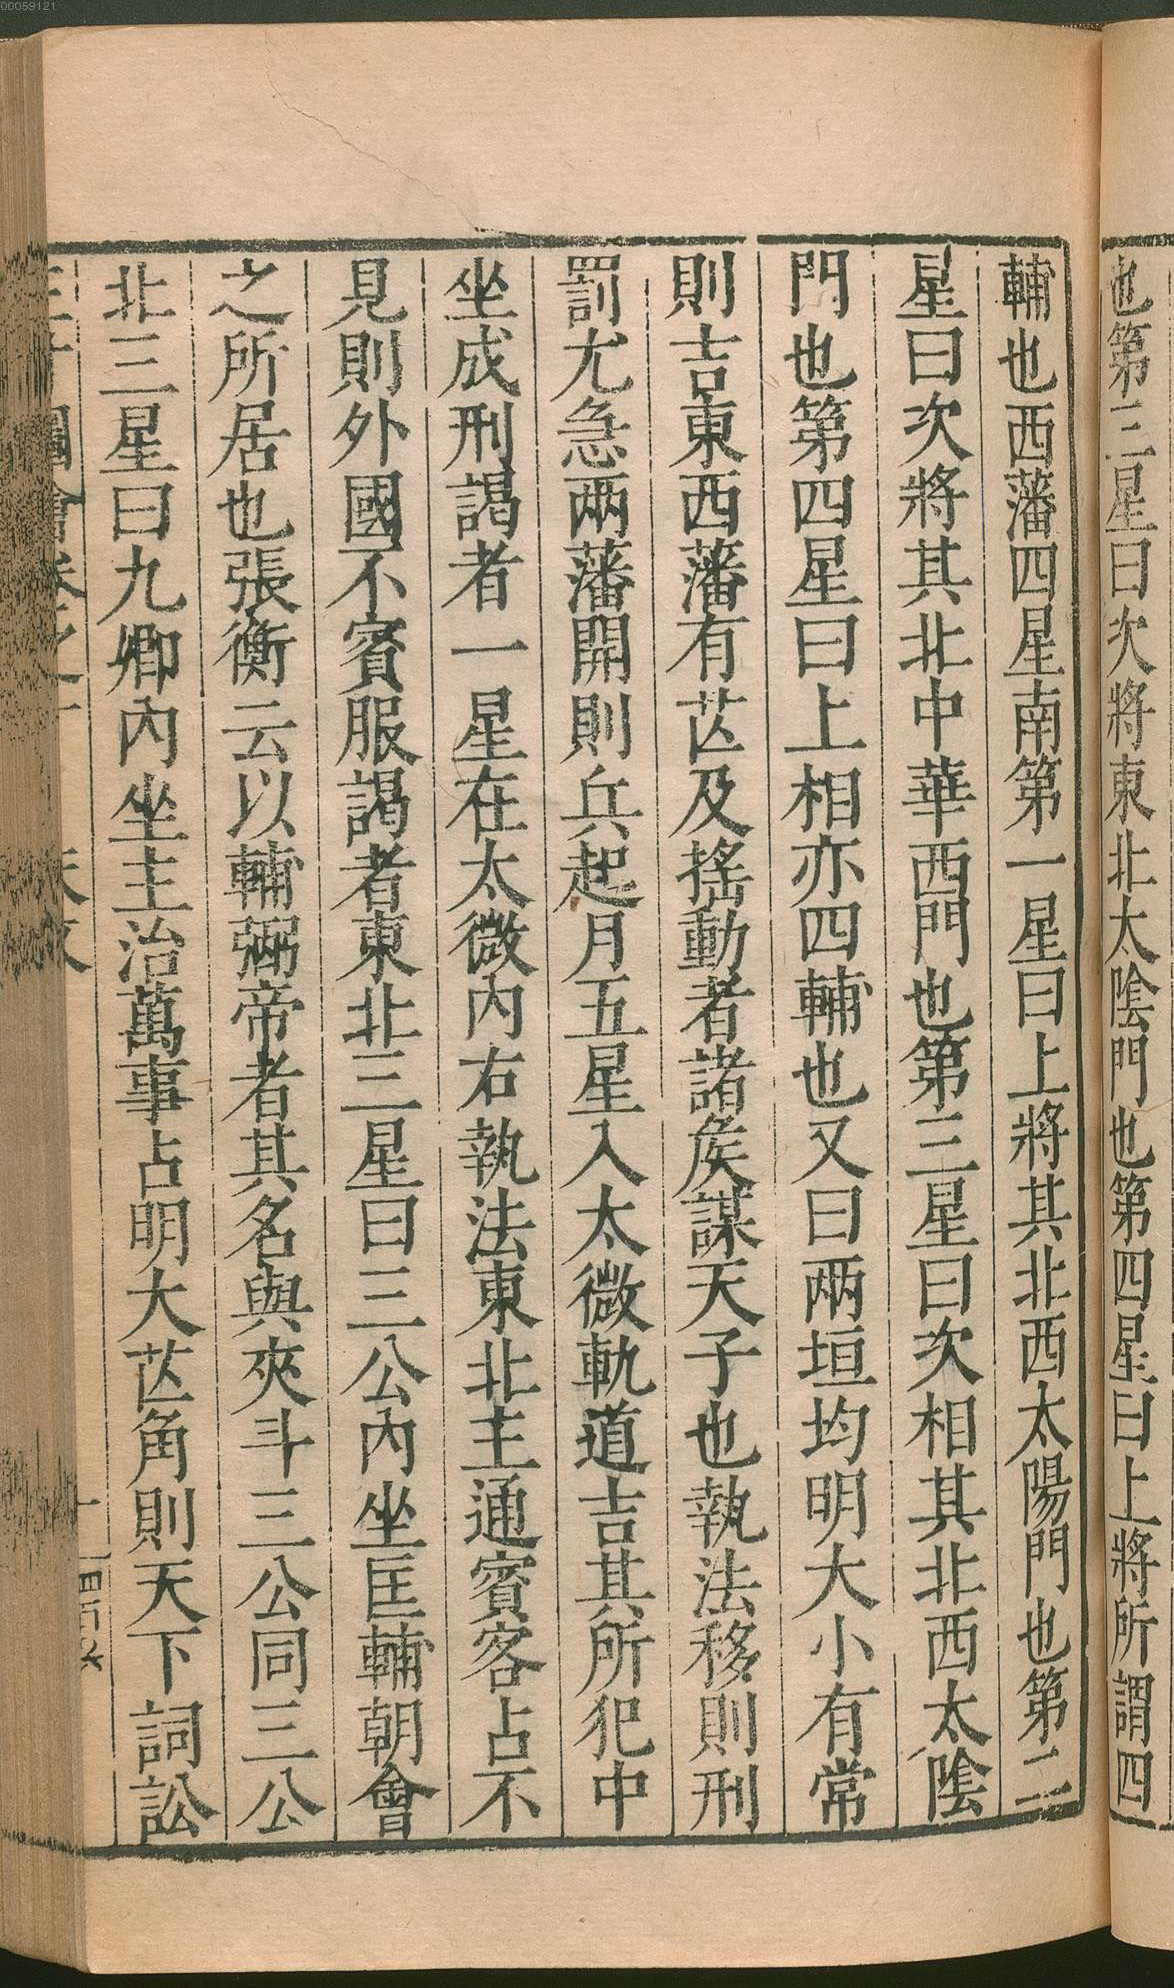 00059121
也第三星曰次將東北太陰門也第四星曰上將所謂四
輔也西藩四星南第一星曰上將其北西太陽門也第二
星曰次將其北中華西門也第三星曰次相其北西太陰
門也第四星曰上相亦四輔也又曰兩垣均明大小有常
則吉東西藩有芒及搖動者諸矦謀天子也執法移則刑
罰尤急兩藩開則兵起月五星入太微軌道吉其所犯中
坐成刑謁者一星在太微內右執法東北主通賓客占不
見則外國不賓服謁者東北三星曰三公內坐匡輔朝會
之所居也張衡云以輔弼帝者其名與夾斗三公同三公
北三星曰九卿內坐主治萬事占明大芒角則天下詞訟